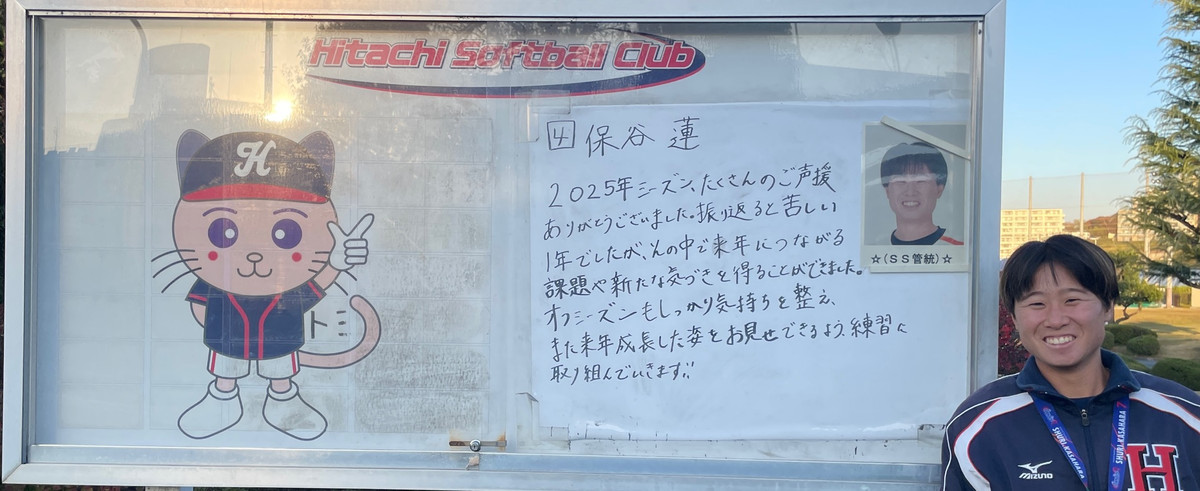 Hitachi Softball Club
H
トミ
4 保谷 蓮
2025年シーズン、たくさんのご声援
ありがとうございました。振り返ると苦しい
1年でしたが、その中で来年につながる
課題や新たな気づきを得ることができました。
オフシーズンもしっかり気持ちを整え、
また来年成長した姿をお見せできるよう、練習に
取り組んでいきます!!
☆(SS管統)☆
SHURI.KASAHARA 7
SHURI.KASAHARA
MIZUNO
H